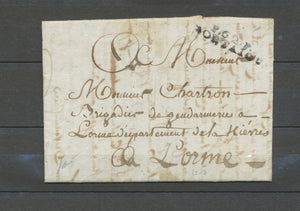 A Monsieur
Monsieur Chartron
Brigadier de gendarmerie a
Lorme département de la Nièvre
A Lorme